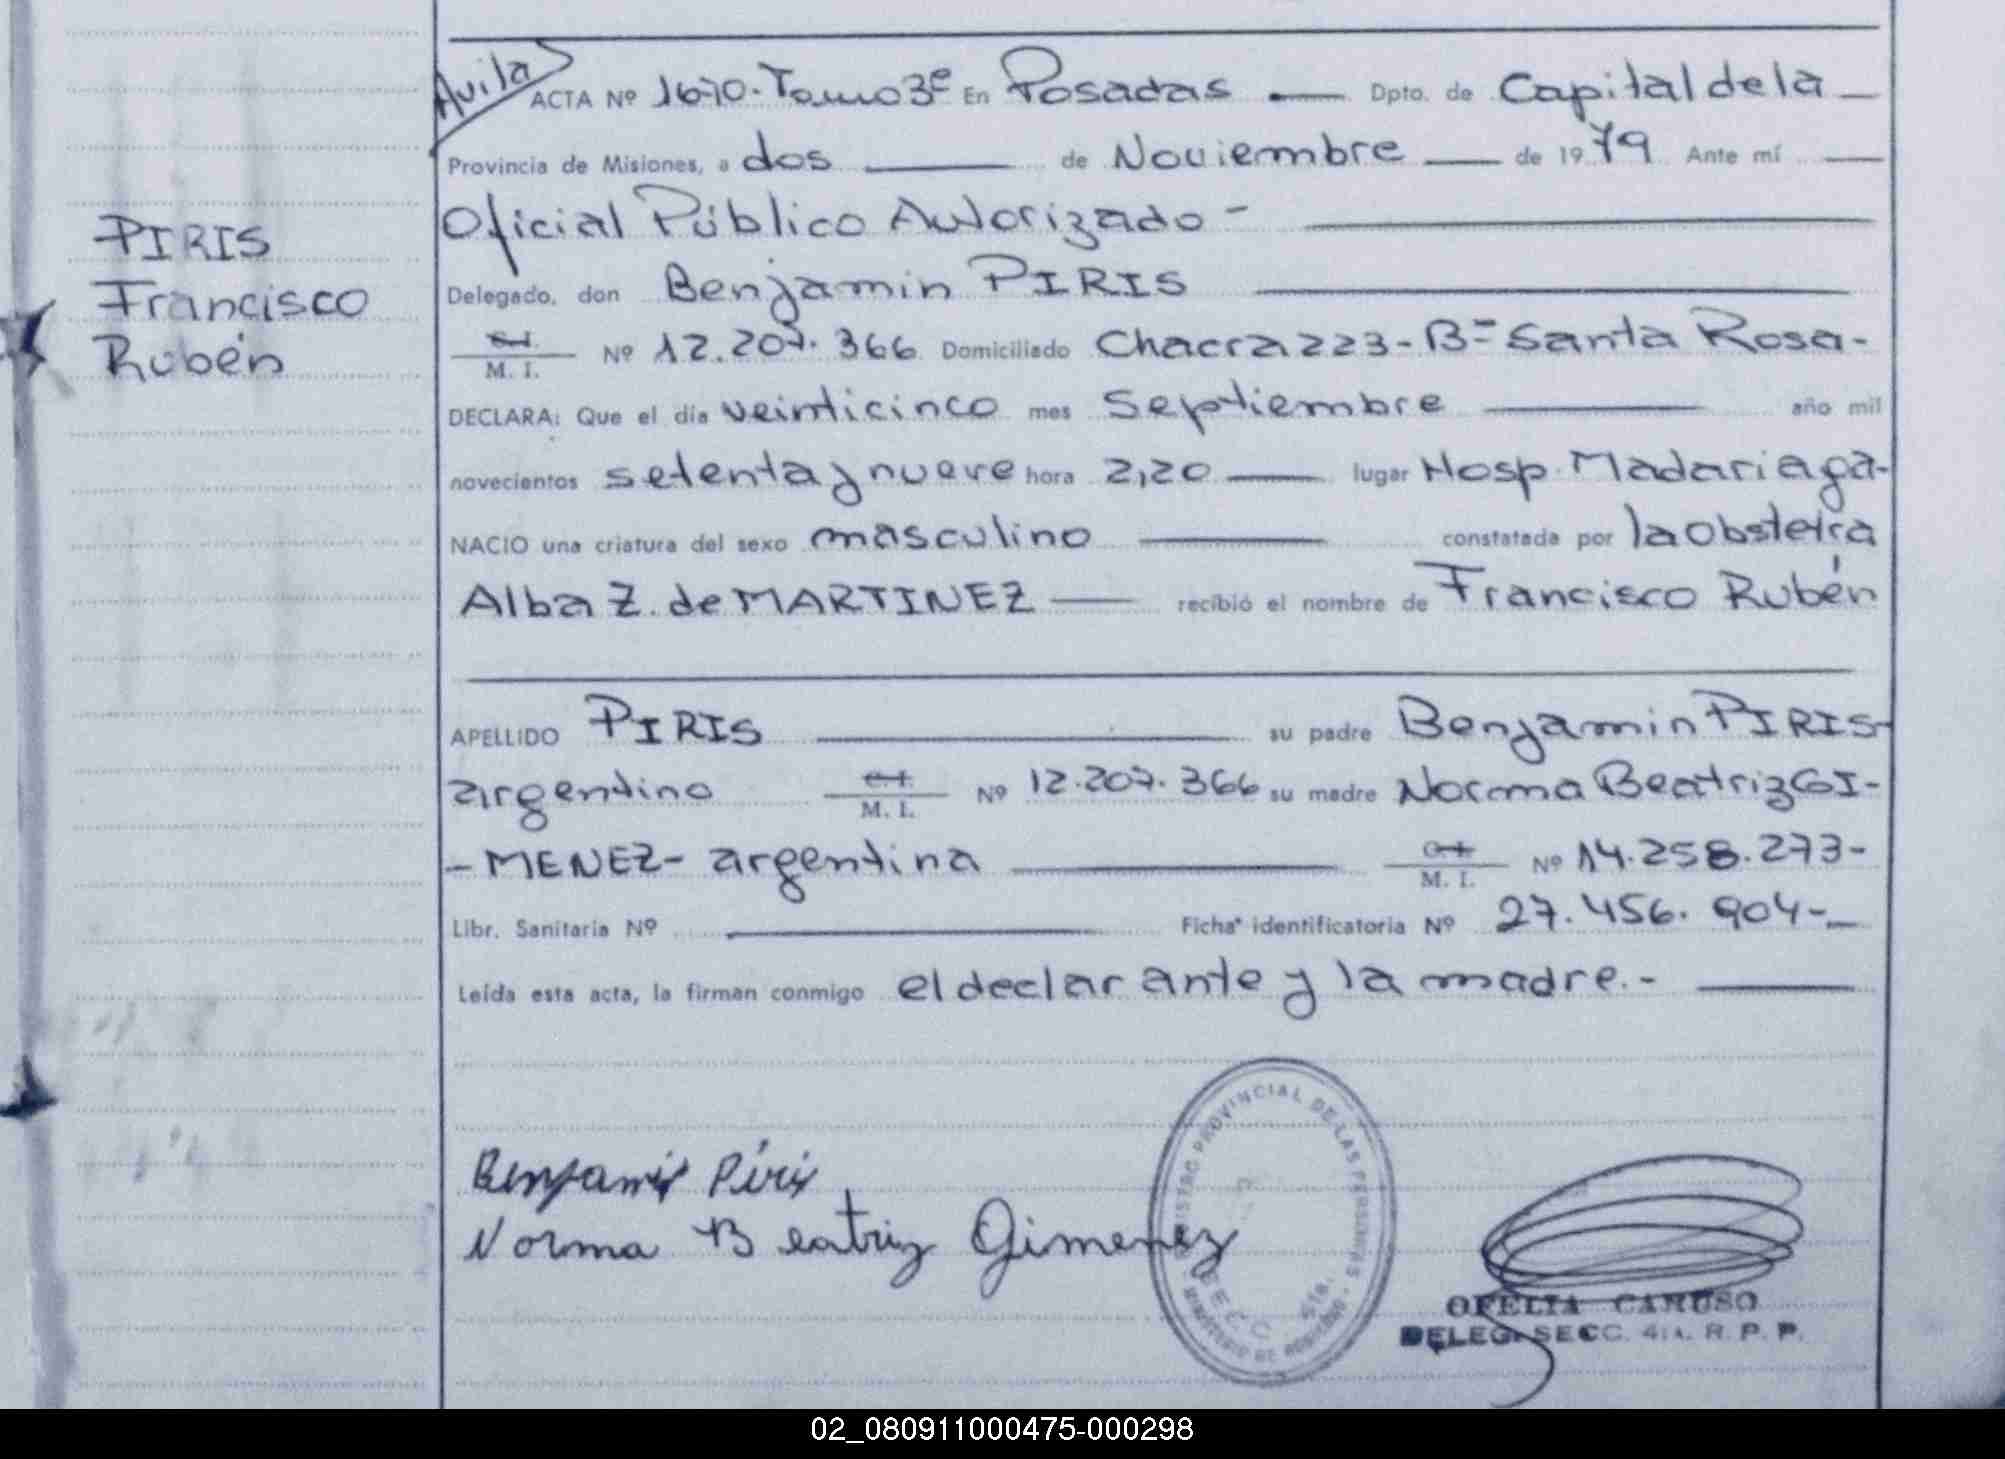 Avila
ACTA Nº 1670. Tomo 3º En Posadas — Dpto. de Capital de la —
Provincia de Misiones, a dos — de Noviembre — de 1979 Ante mí —
Oficial Público Autorizado -
PIRIS
Francisco
Rubén
Delegado, don Benjamin PIRIS
C.I.
M. I. Nº 12.207.366 Domiciliado Chacra 223 - Bº Santa Rosa -
DECLARA: Que el día veinticinco mes Septiembre — año mil
novecientos setenta y nueve hora 2,20 — lugar Hosp. Madariaga-
NACIO una criatura del sexo masculino — constatada por la Obstetra
Alba Z. de MARTINEZ — recibió el nombre de Francisco Rubén
APELLIDO PIRIS — su padre Benjamin PIRIS-
argentino C.I. M. I. Nº 12.207.366 su madre Norma Beatriz GI-
-MENEZ- argentina — C.I. M. I. Nº 14.258.273-
Libr. Sanitaria Nº — Ficha identificatoria Nº 27.456.904-
Leída esta acta, la firman conmigo el declarante y la madre.-
Benjamin Piris
Norma Beatriz Gimenez
REGISTRO PROVINCIAL DE LAS PERSONAS
MINISTERIO DE GOBIERNO
SECC.
OFELIA CARUSO
DELEG. SECC. 4ta. R. P. P.
02_080911000475-000298